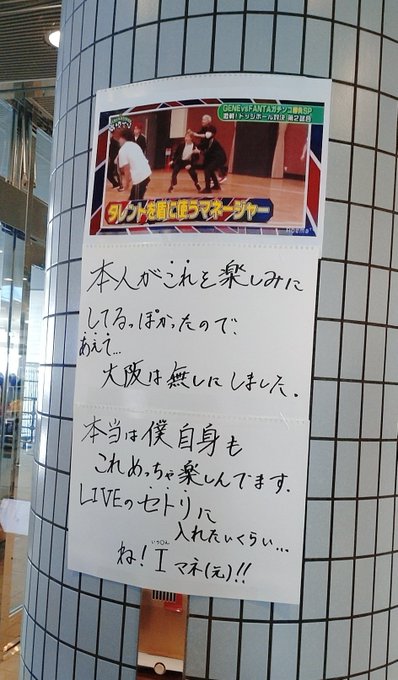 GENEvsFANTAガチンコ勝負SP
激戦!ドッジボール対決 第2試合
タレントを盾に使うマネージャー
本人がこれを楽しみに
してるっぽかったので、
あえて…
大阪は無しにしました。
本当は僕自身も
これめっちゃ楽しんでます。
LIVEのセトリに
入れたいくらい…
ね! Iマネ(元)!!